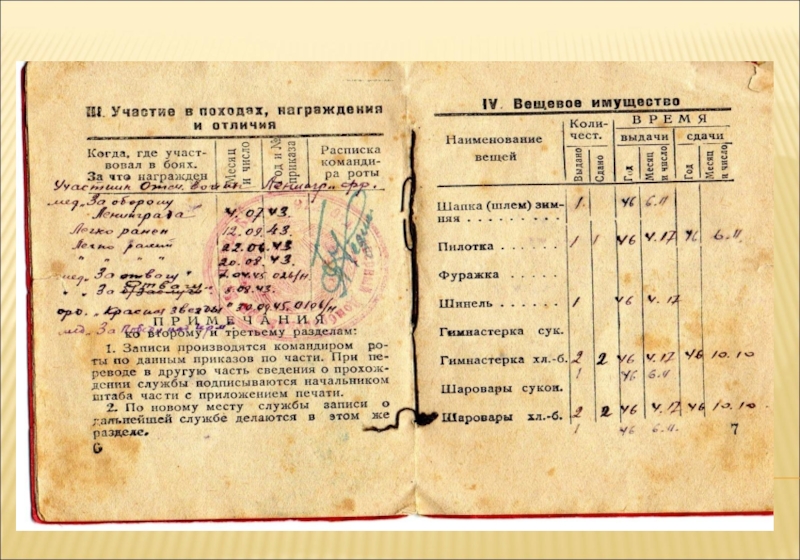 III. Участие в походах, награждения
и отличия
Когда, где участ-
вовал в боях.
За что награжден
Месяц
и число
Год и №
приказа
Расписка
команди-
ра роты
Участник Отеч. войны Ленингр. фро.
мед. За оборону
Ленинграда 4.07.43.
Легко ранен 12.09.43.
Легко ранен 22.06.43
" " " 20.08.43.
мед. За отвагу " 7.04.45 026/н
" " За отвагу " .08.43.
орд. "Красная звезда" 30.09.45. 0106/н
мед. За
ПРИМЕЧАНИЯ
ко второму и третьему разделам:
1. Записи производятся командиром ро-
ты по данным приказов по части. При пе-
реводе в другую часть сведения о прохож-
дении службы подписываются начальником
штаба части с приложением печати.
2. По новому месту службы записи о
дальнейшей службе делаются в этом же
разделе.
6
IV. Вещевое имущество
Наименование
вещей
Коли-
чест.
ВРЕМЯ
выдачи сдачи
Выдано
Сдано
Год
Месяц
и число
Год
Месяц
и число
Шапка (шлем) зим-
няя . . . . . . . . . . 1 46 6.11
Пилотка . . . . . . . 1 1 46 4.17 46 6.11.
Фуражка . . . . . .
Шинель . . . . . . . 1 46 4.17
Гимнастерка сук.
Гимнастерка хл.-б. 2 2 46 4.17 46 10.10
1 46 6.11
Шаровары сукон.
Шаровары хл.-б. 2 2 46 4.17 46 10.10.
1 46 6.11.
7